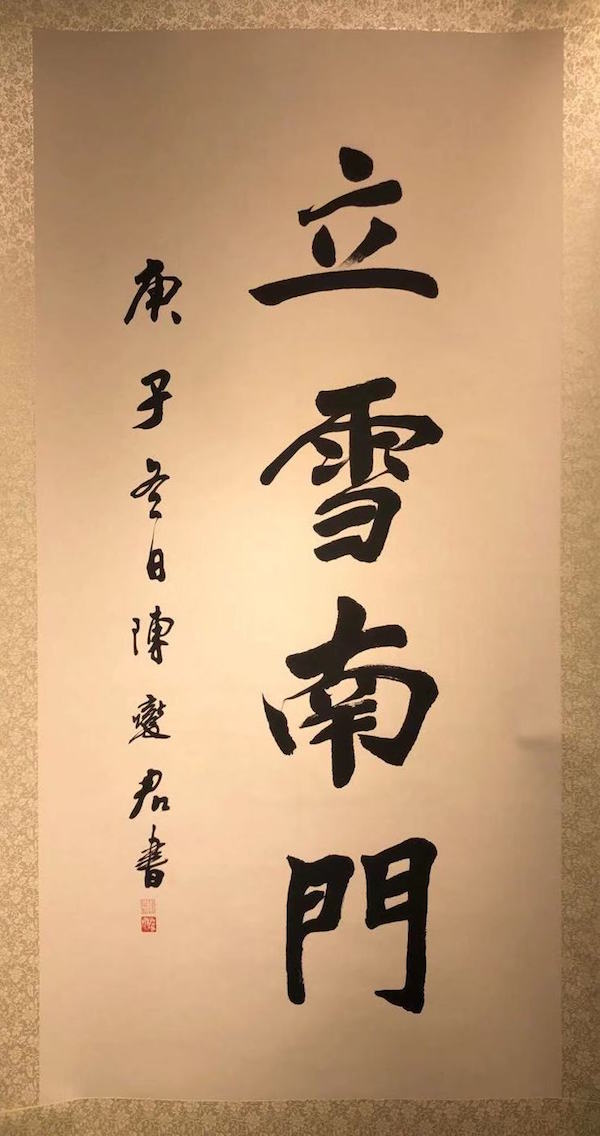 立雪南門
庚子冬日陳燮君書